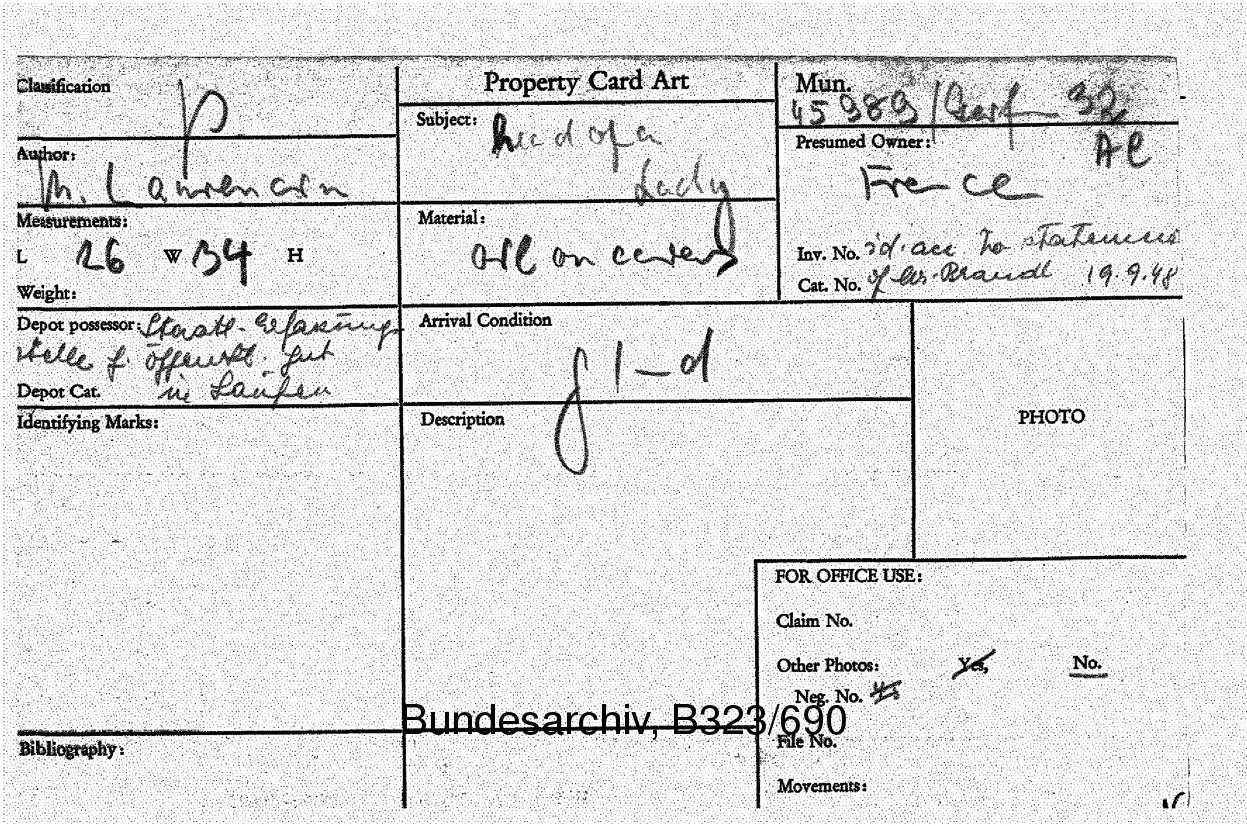 Classification
p
Property Card Art
Mun.
45 989 / 32
Author:
M. Laurencin
Subject:
head of a
Lady
Presumed Owner:
France
Measurements:
L 26 W 34 H
Weight:
Material:
oil on canvas
Inv. No. id. acc to statement
Cat. No. of Brandt 19.9.48
Depot possessor: Staatl. Erfassungs
stelle f. öffentl. Gut
Depot Cat. in Laufen
Arrival Condition
Identifying Marks:
Description
PHOTO
FOR OFFICE USE:
Claim No.
Other Photos: Yes, No.
Neg. No.
Bundesarchiv, B323/690
File No.
Bibliography:
Movements: